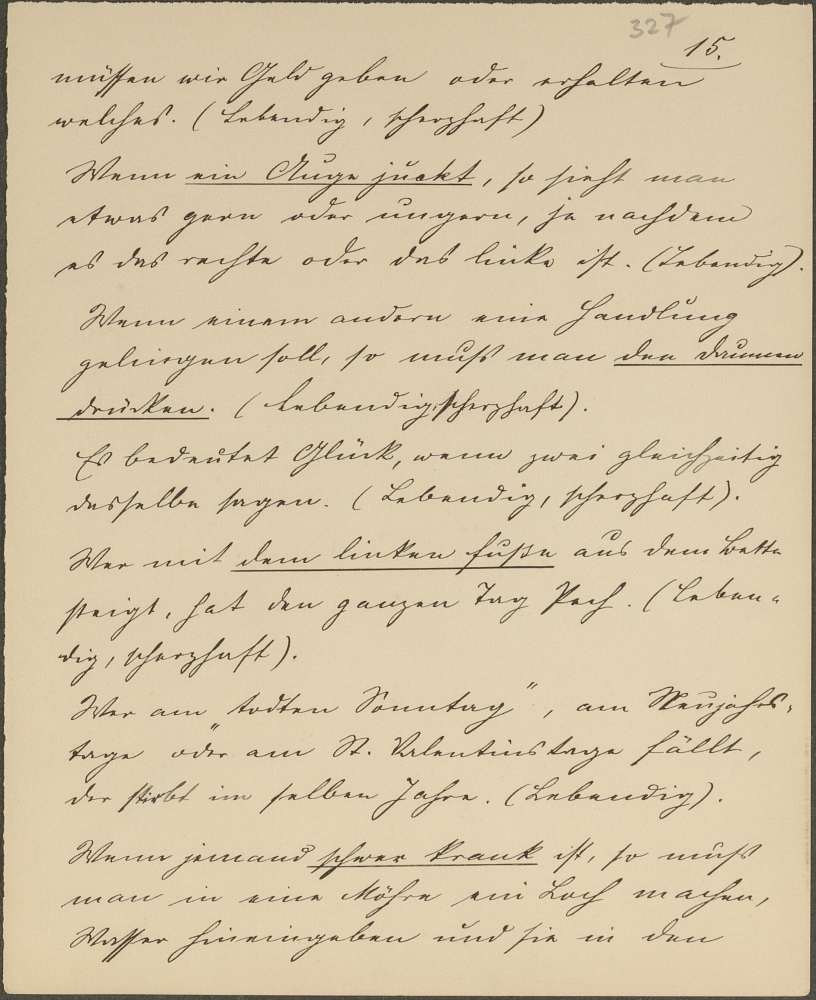 327
15.
müssen wir Geld geben oder erhalten
welches. (Lebendig, scherzhaft)
Wenn ein Auge juckt, so sieht man
etwas gern oder ungern, je nachdem
es das rechte oder das linke ist. (Lebendig).
Wenn einem andern eine Handlung
gelingen soll, so muß man den Daumen
drücken. (Lebendig, scherzhaft).
Es bedeutet Glück, wenn zwei gleichzeitig
dasselbe sagen. (Lebendig, scherzhaft).
Wer mit dem linken Fuße aus dem Bette
steigt, hat den ganzen Tag Pech. (Leben-
dig, scherzhaft).
Wer am „todten Sonntag", am Neujahrs-
tage oder am St. Valentinstage fällt,
der stirbt im selben Jahre. (Lebendig).
Wenn jemand schwer krank ist, so muß
man in eine Möhre ein Loch machen,
Wasser hineingeben und sie in den